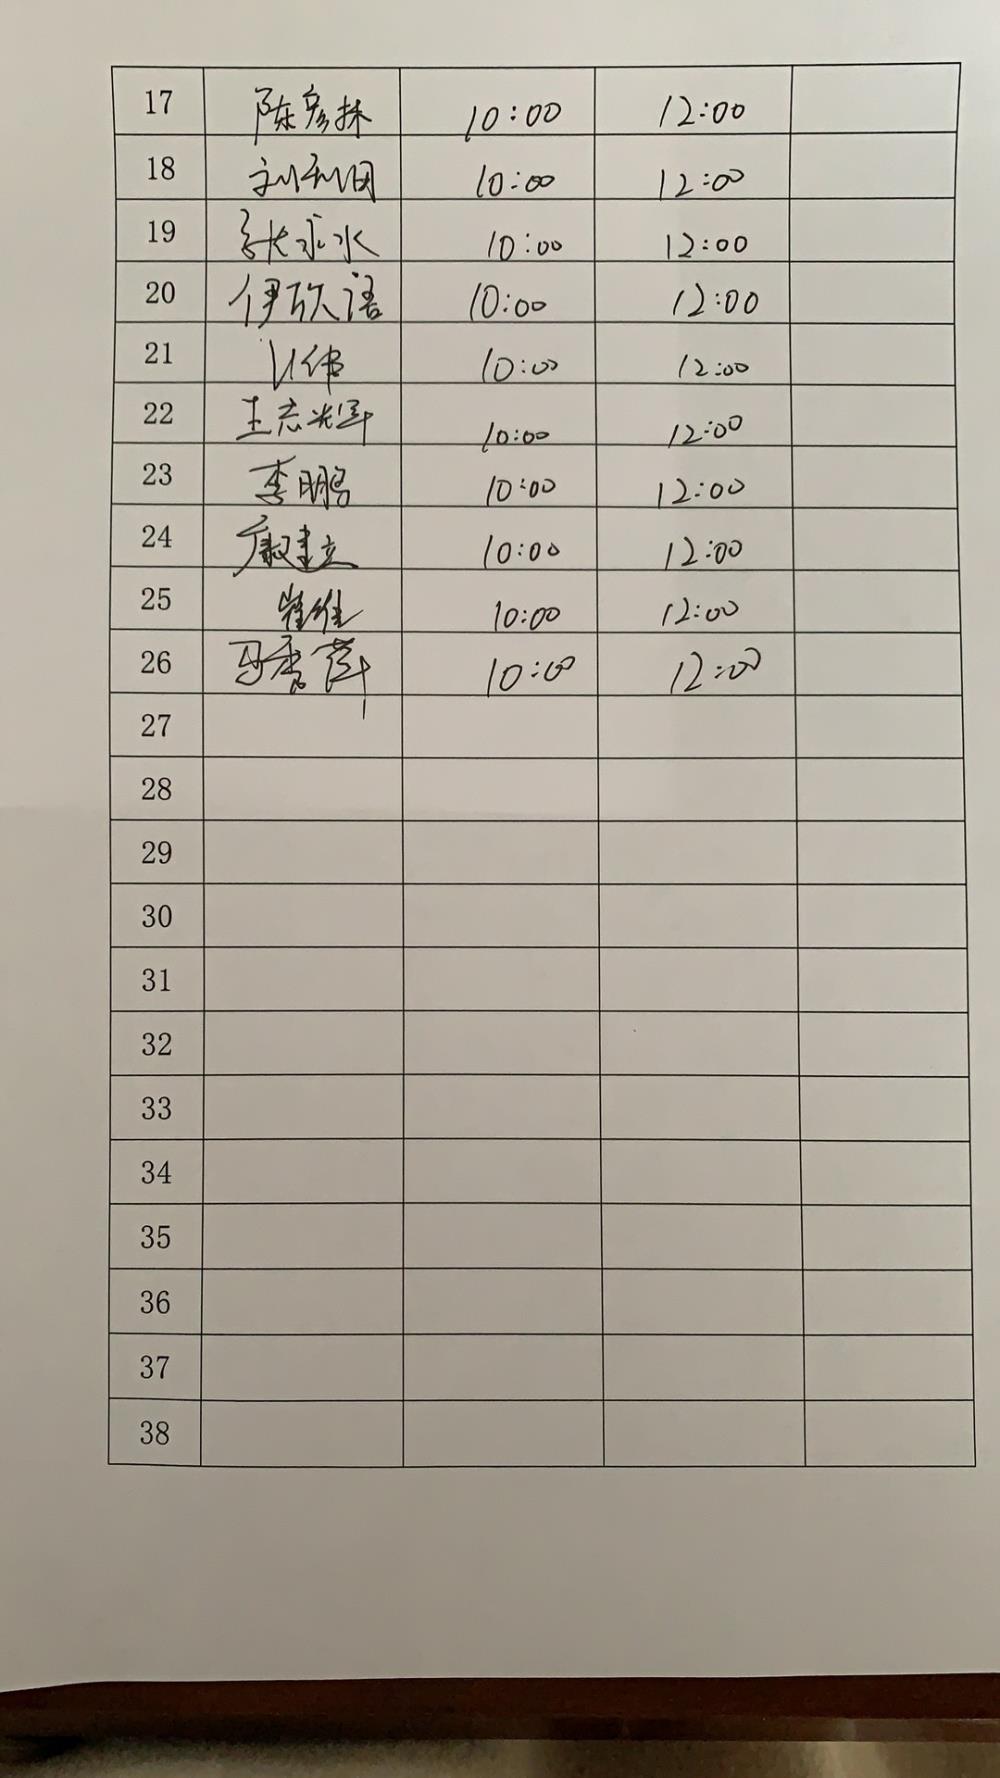 17 陈彦林 10:00 12:00
18 刘利国 10:00 12:00
19 张永水 10:00 12:00
20 伊欣语 10:00 12:00
21 伟 10:00 12:00
22 王志光军 10:00 12:00
23 李鹏 10:00 12:00
24 康建立 10:00 12:00
25 崔维 10:00 12:00
26 马香萍 10:00 12:00
27
28
29
30
31
32
33
34
35
36
37
38